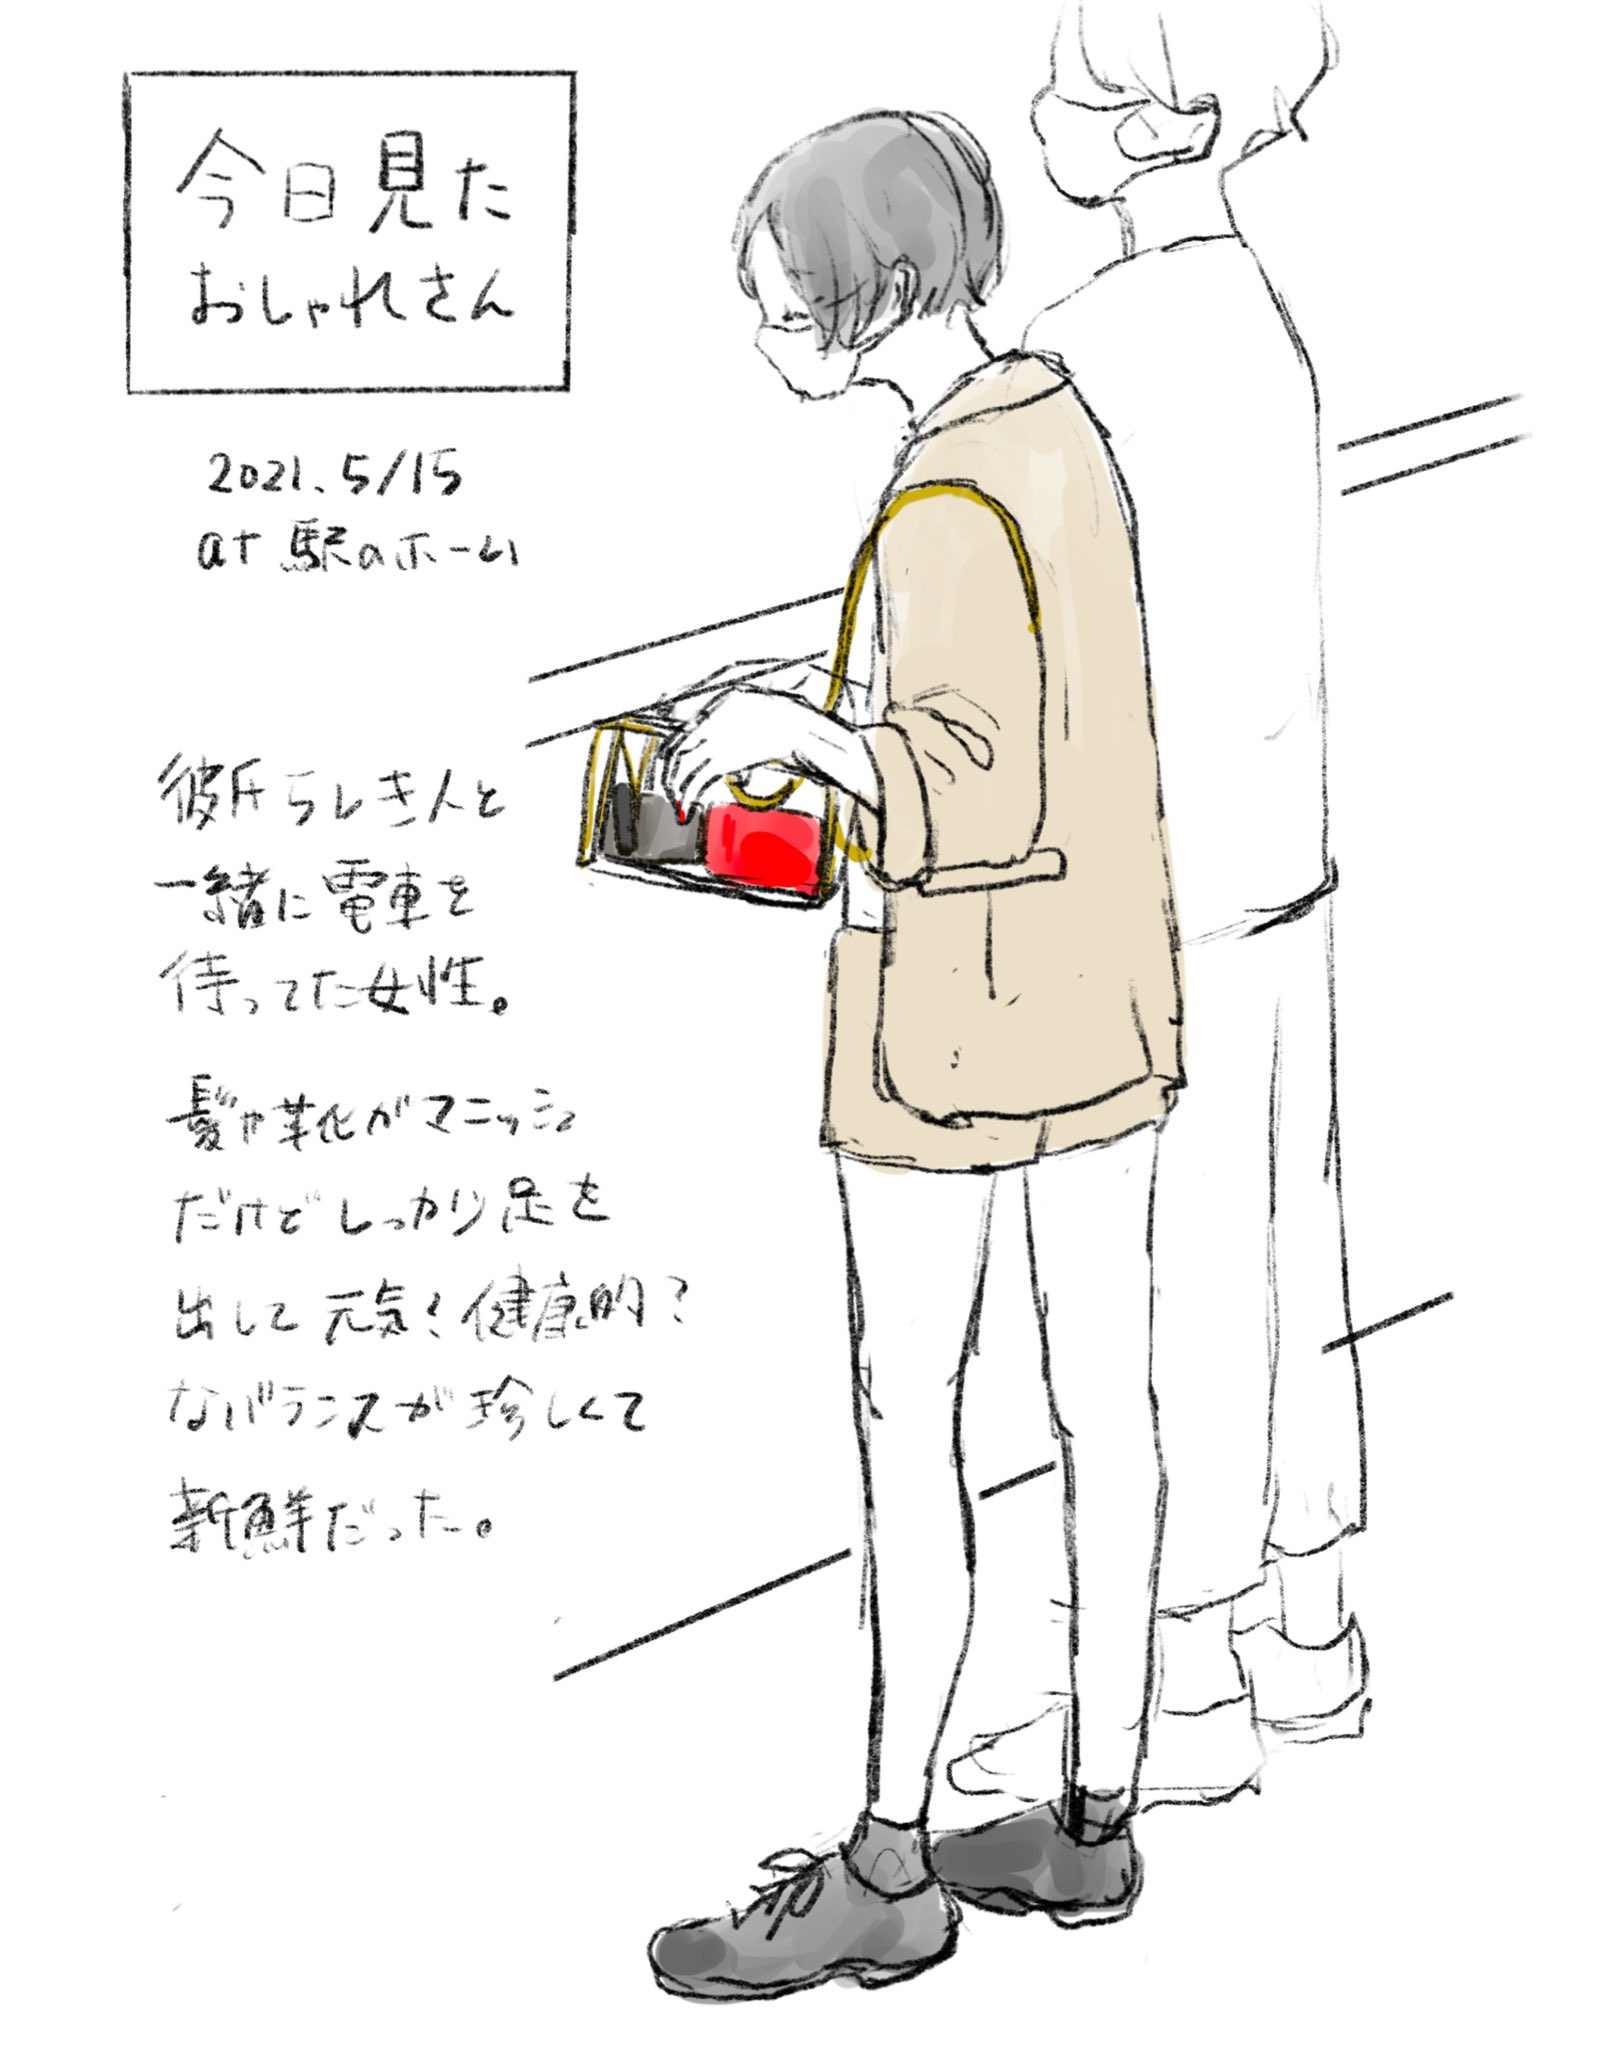 今日見た
おしゃれさん
2021.5/15
at 駅のホーム
彼氏らしき人と
一緒に電車を
待ってた女性。
髪や革靴がマニッシュ
だけどしっかり足を
出して元気!健康的?
なバランスが珍しくて
新鮮だった。